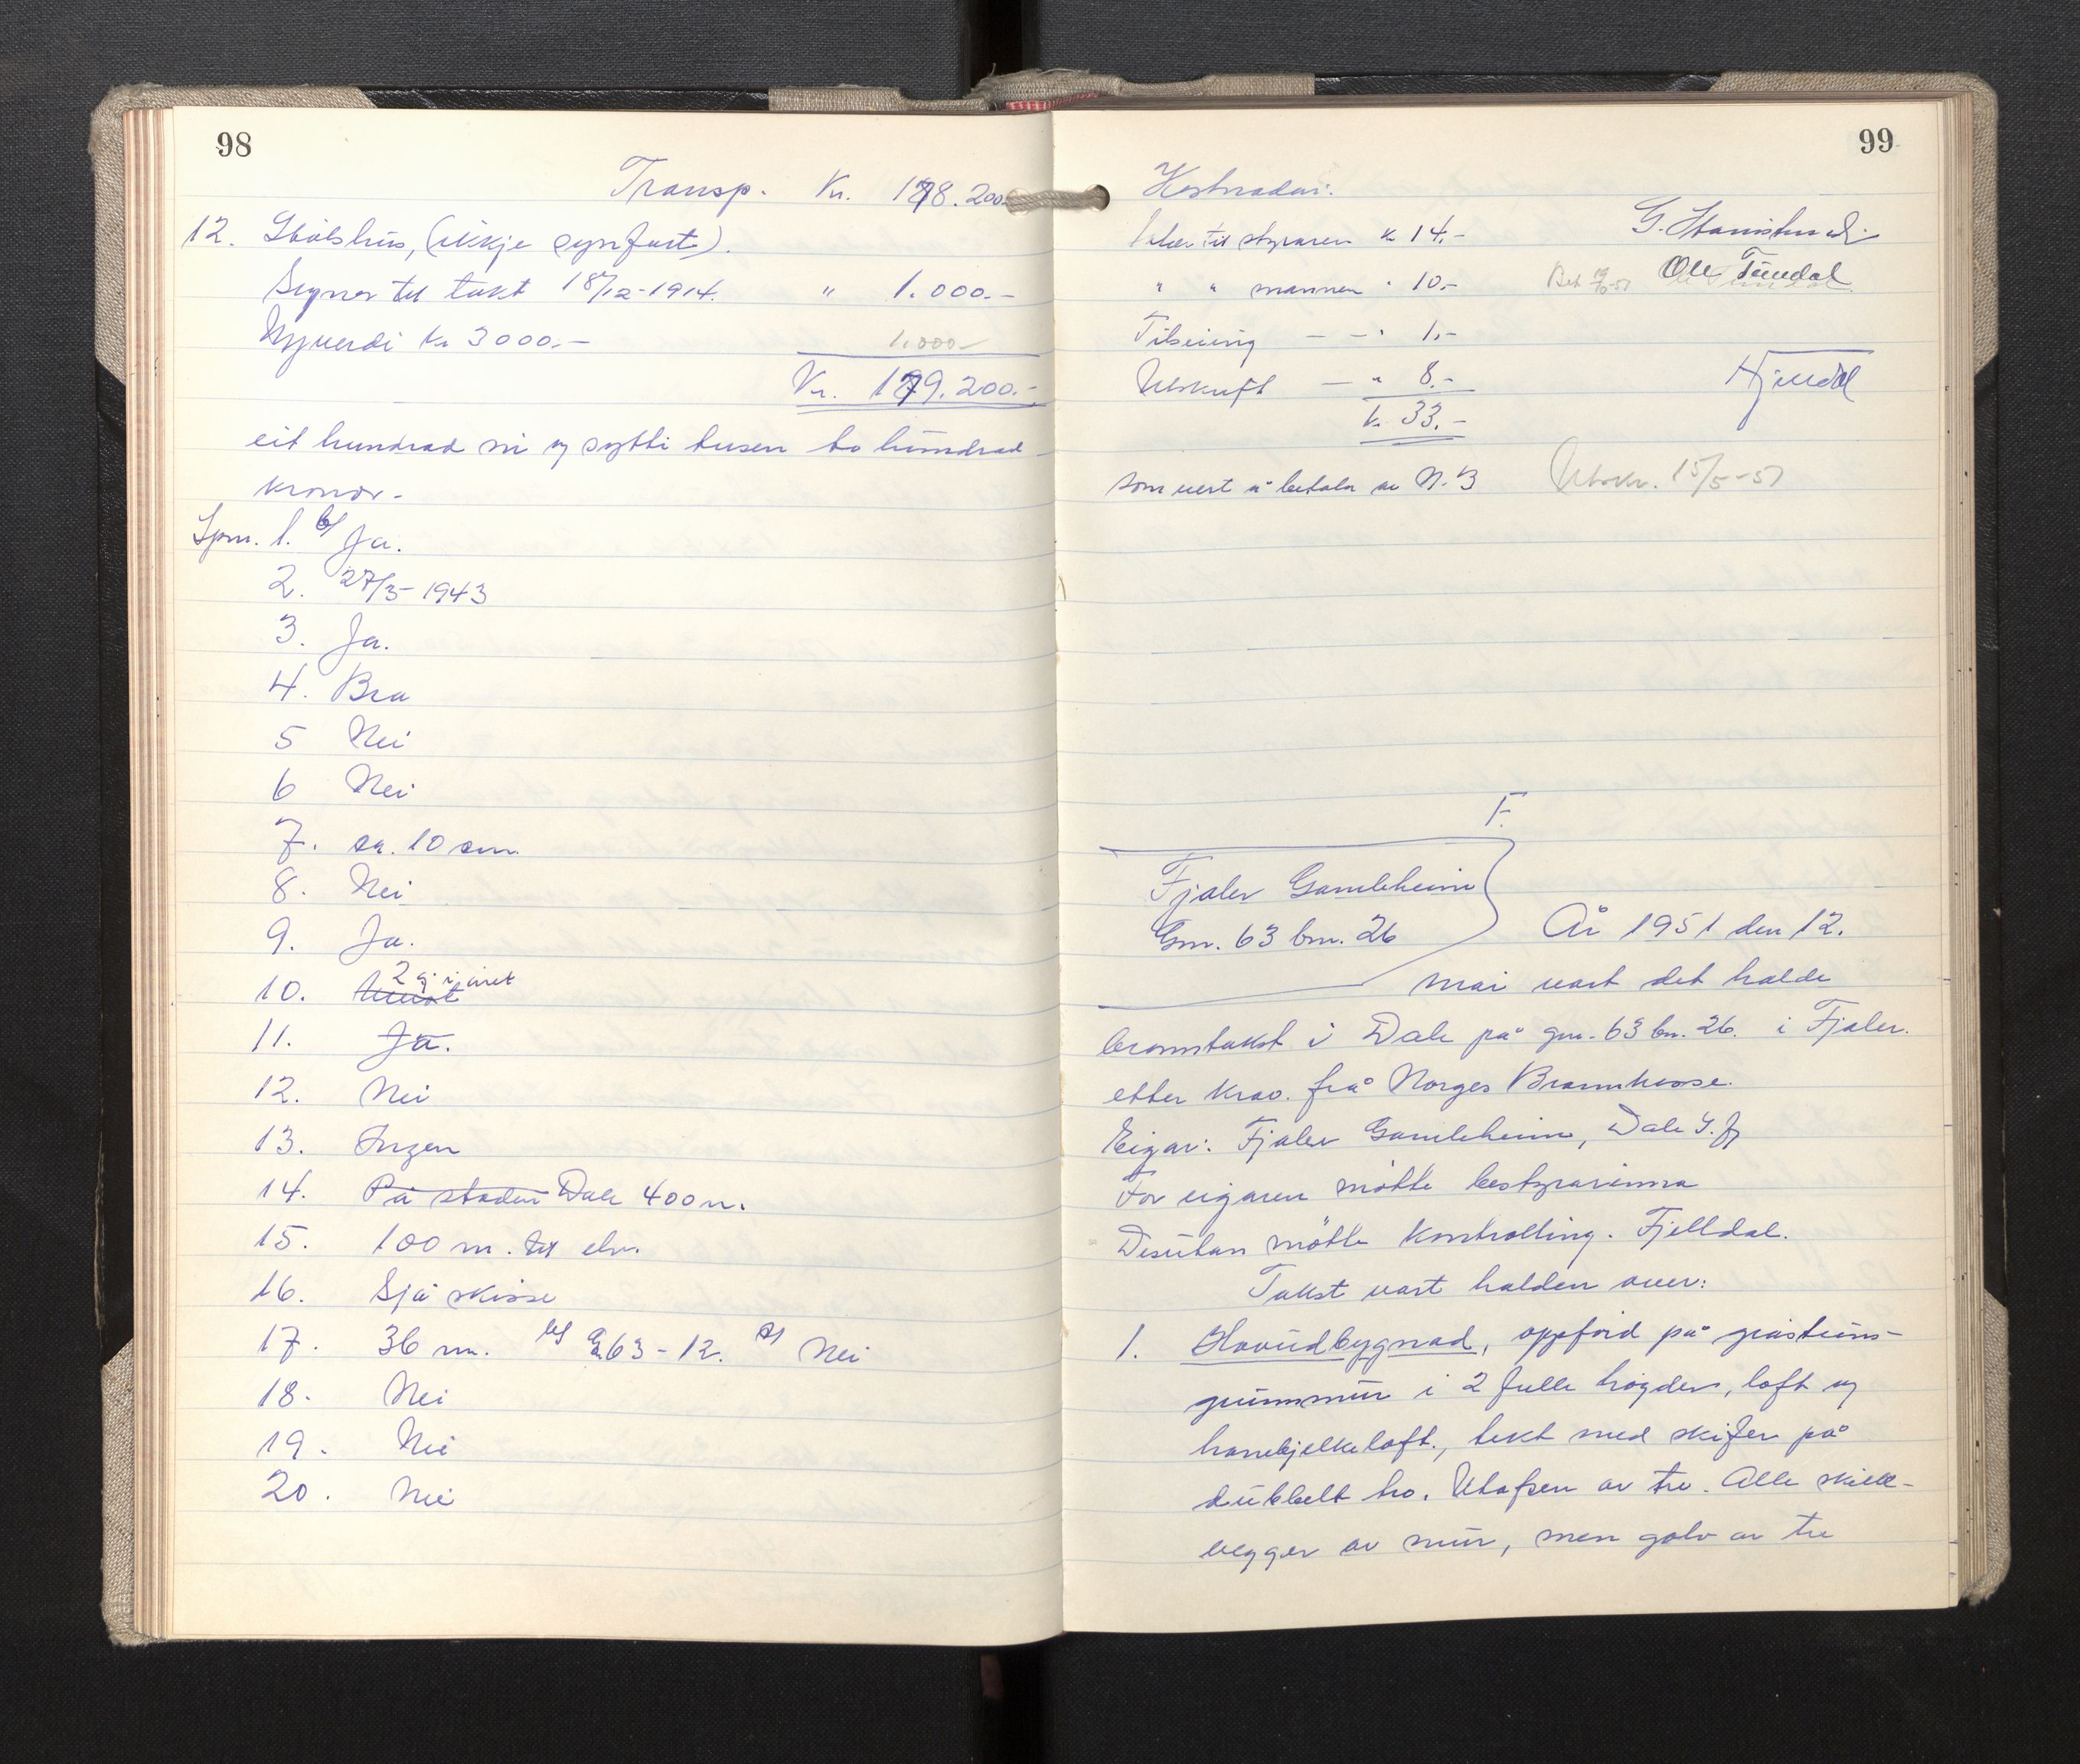 98
Transp. Kr. 178.200.-
12. Stølshus, (ikkje synfart).
Syner til takst 18/12-1914. " 1.000.-
Nyverdi kr 3000.- 1.000-
Kr. 179.200.-
eit hundrad ni og sytti tusen to hundrad
kronor-
Spm. 1. b/ Ja.
2. 27/3-1943
3. Ja.
4. Bra
5 Nei
6 Nei
7. ca. 10 cm.
8. Nei
9. Ja.
10. 2 g. i året
11. Ja.
12. Nei
13. Ingen
14. På staden Dale 400 m.
15. 100 m. til elv.
16. Sjå skisse
17. 36 m. b/ G 63-12. c/ Nei
18. Nei
19. Nei
20. Nei
99
Kostnadar:
til styraren kr 14.-
" " mannen " 10.-
Ole Tundal
Tilseiing - - " 1.-
Utskrift - " 8.-
kr 33.-
som vert å betala av N. B
Utskr. 15/5-51
F.
Fjaler Gamleheim
Gnr. 63 bnr. 26
År 1951 den 12.
mai vart det halde
branntakst i Dale på gnr. 63 bn. 26. i Fjaler.
etter krav. frå Norges Brannkasse.
Eigar: Fjaler Gamleheim, Dale S.fj
For eigaren møtte bestyrarinna
Desutan møtte Kontrolling. Fjelldal.
Takst vart halden over:
1. Hovudbygnad, oppførd på gråsteins-
grunnmur i 2 fulle høgder, loft og
hanebjelkeloft., tekt med skifer på
dubbelt tro. Utafsen av tre. Alle skille-
vegger av mur, men golv av tre